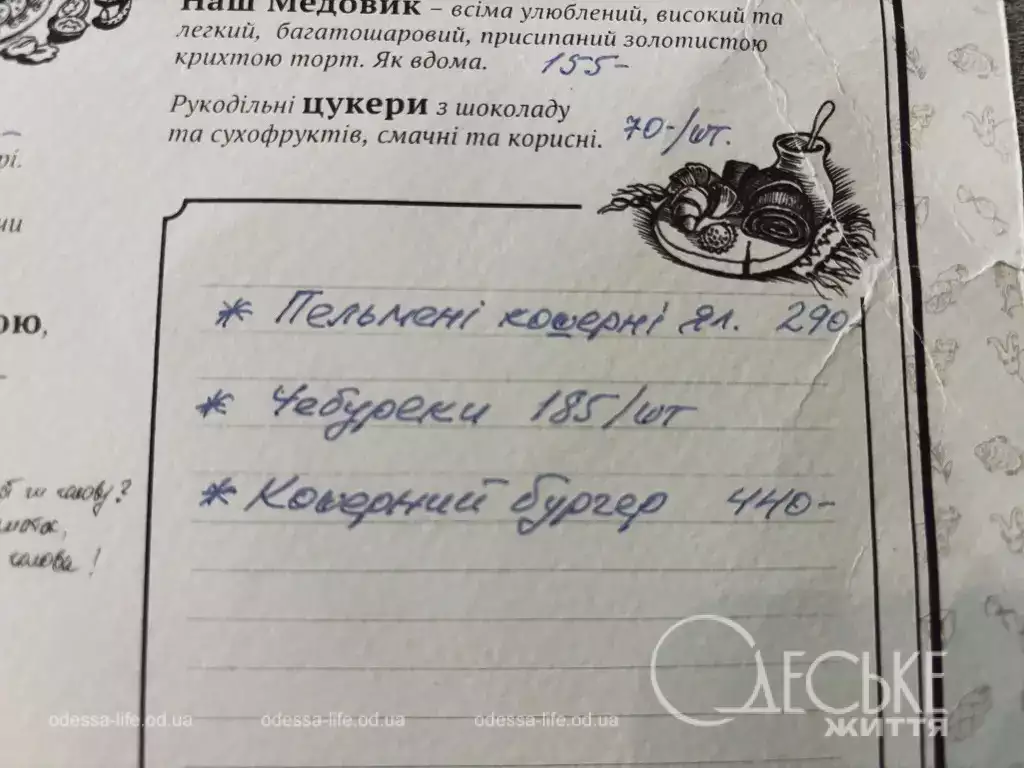 Наш Медовик – всіма улюблений, високий та
легкий, багатошаровий, присипаний золотистою
крихтою торт. Як вдома. 155-
Рукодільні цукери з шоколаду
та сухофруктів, смачні та корисні. 70-/шт.
рі.
ою,
* Пельмені кошерні гл. 290-
* Чебуреки 185/шт
* Кошерний бургер 440-
чи халову?
халова!
odessa-life.od.ua odessa-life.od.ua odessa-life.od.ua
ОДЕСЬКЕ
ЖИТТЯ